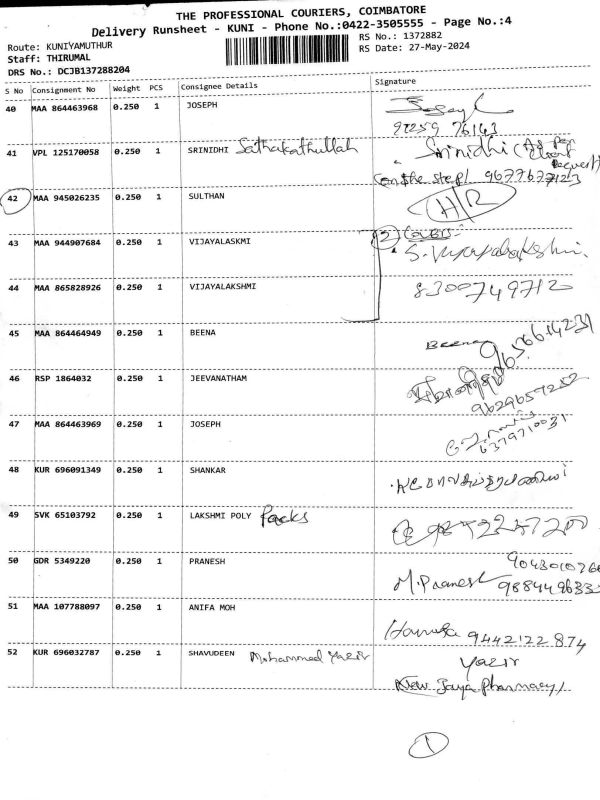 THE PROFESSIONAL COURIERS, COIMBATORE
Delivery Runsheet - KUNI - Phone No.:0422-3505555 - Page No.:4
Route: KUNIYAMUTHUR
Staff: THIRUMAL
DRS No.: DCJB137288204
RS No.: 1372882
RS Date: 27-May-2024
S No Consignment No Weight PCS Consignee Details Signature
40 MAA 864463968 0.250 1 JOSEPH
41 VPL 125170058 0.250 1 SRINIDHI Sathakathullah Srinidhi
42 MAA 945026235 0.250 1 SULTHAN H/R
43 MAA 944907684 0.250 1 VIJAYALASKMI 2 Covers S. Vijayalakshmi
44 MAA 865828926 0.250 1 VIJAYALAKSHMI 8300749712
45 MAA 864464949 0.250 1 BEENA Beena 9656614231
46 RSP 1864032 0.250 1 JEEVANATHAM
9629657252
47 MAA 864463969 0.250 1 JOSEPH
6379710031
48 KUR 696091349 0.250 1 SHANKAR
49 SVK 65103792 0.250 1 LAKSHMI POLY Packs
50 GDR 5349220 0.250 1 PRANESH
M. Pranesh
51 MAA 107788097 0.250 1 ANIFA MOH
9442122874
52 KUR 696032787 0.250 1 SHAVUDEEN Mohammed Yazir Yazir
New Jaya Pharmacy
1